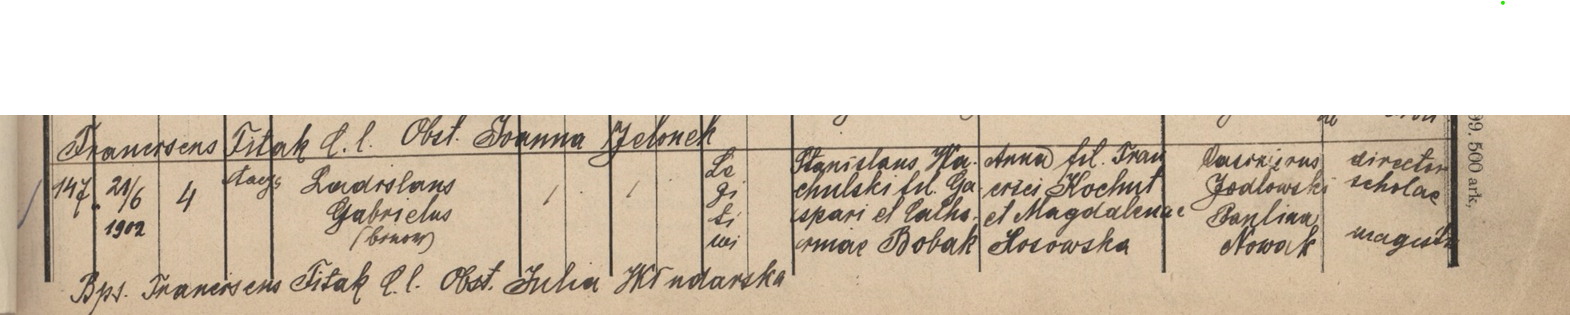 Franciscus Fitak C. l. Obst. Joanna Jelonek
147. 21/6 1902 4 Ladislaus Gabrielus (binom) / / Le gi ti mi
Stanislaus Ha- chulski fil. Ga- spari et Catha- rinae Bobak
Anna fil. Fran cisci Kochut et Magdalenae Sosowska
Casimirus Jodlowski Paulina Nowak
director scholae
Bps. Franciscus Fitak C. l. Obst. Julia
99. 500 ark,